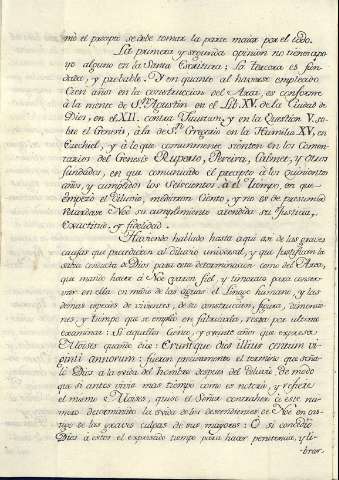 mó el precepto se debe tomar la parte maior por el todo.
La primera y segunda opinion no tienen apo
yo alguno en la Santa Escritura; La tercera es fun
dada, y probable. Y en quanto al haverse empleado
Cien años en la construccion del Arca, es conforme
à la mente de Sn. Agustin en el Lib. XV. de la Ciudad de
Dios, en el XII. contra Faustum, y en la Question V. so
bre el Genesis, à la de Sn. Gregorio en la Homilia XV, en
Ezechiel, y à lo que comunmente sienten en los Comen
tarios del Genesis Ruperto, Pereira, Calmet, y otros
fundados, en que comunicado el precepto à los quinientos
años, y cumplidos los Seiscientos à el tiempo, en que
empezó el diluvio, mediaron Ciento, y no es de presumir
retardase Noè su cumplimiento atendida su Justicia,
exactitud, y fidelidad.
Haviendo hallado hasta aqui de las graves
causas que precedieron al diluvio universal, y que justifican la
sabia conducta de Dios para esta determinacion como del Arca,
que mandó hacer à Noè varon fiel, y timorato para conser
var en ella en medio de las aguas el Linage humano, y las
demas especies de vivientes, de su construccion, figura, dimensio
nes, y tiempo que se empleó en fabricarla, resta por ultimo
examinar: Si aquellos Ciento, y veinte años que expresa
Moises quando dice: Eruntque dies illius centum vi
ginti annorum: fueron precisamente el termino que seña
ló Dios à la vida del hombre despues del diluvio de modo
que si antes vivia mas tiempo como es notorio, y refiere
el mismo Moises, quiso el Señor contraher à este nu
mero determinado la vida de los descendientes de Noè en cas
tigo de las graves culpas de sus mayores: O si concedió
Dios à estos el expresado tiempo para hacer penitencia, y li
brar.